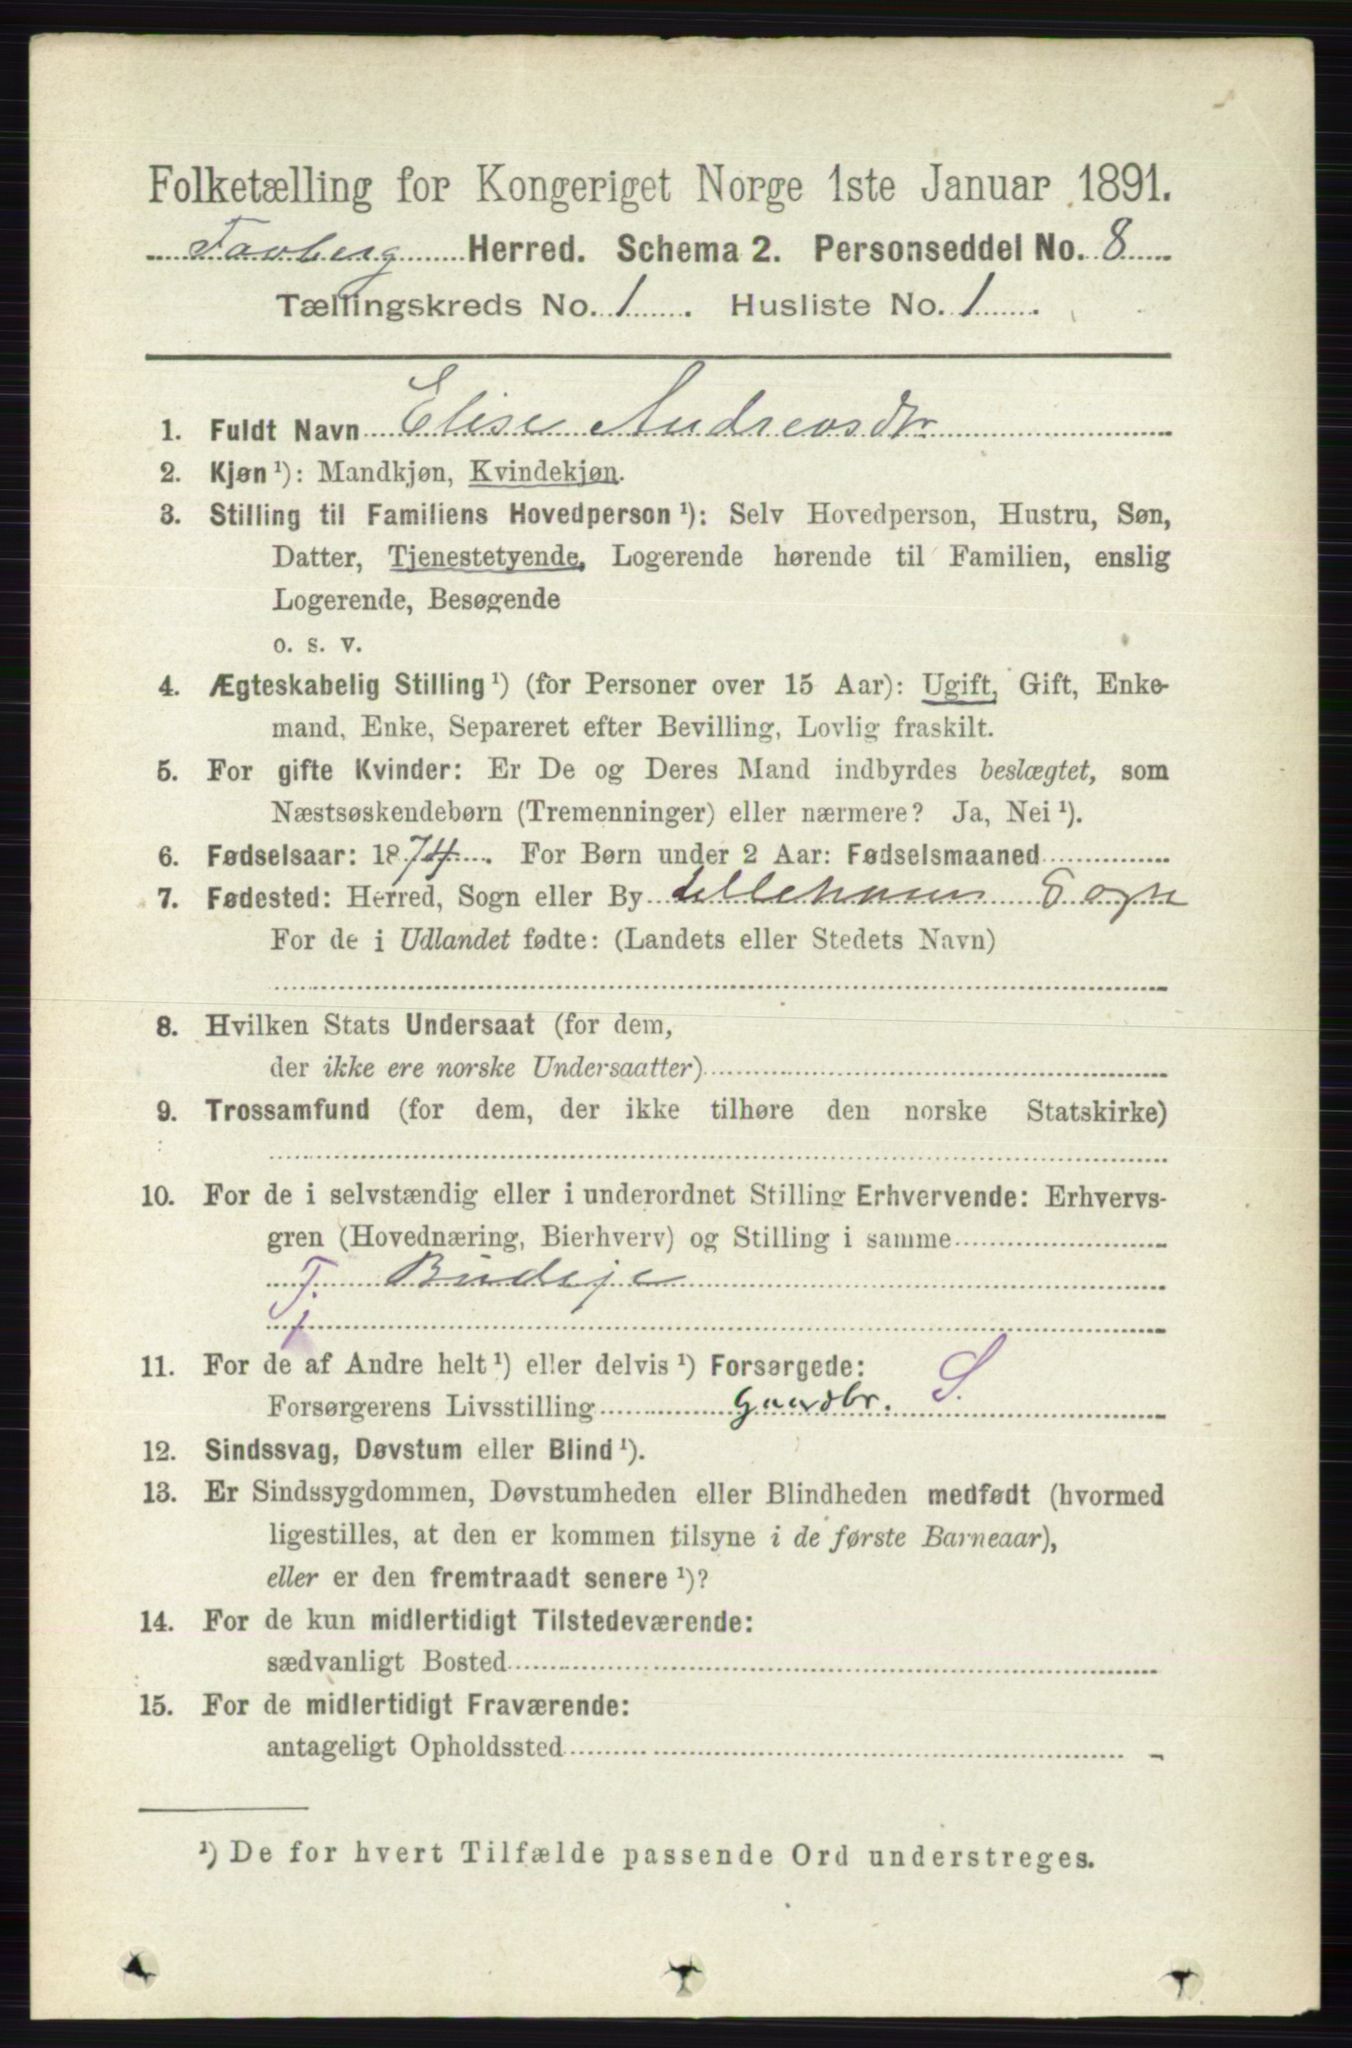 Folketælling for Kongeriget Norge 1ste Januar 1891.
Faaberg Herred. Schema 2. Personseddel No. 8
Tællingskreds No. 1. Husliste No. 1.
1. Fuldt Navn Elise Andreasdtr
2. Kjøn ¹): Mandkjøn, Kvindekjøn.
3. Stilling til Familiens Hovedperson ¹): Selv Hovedperson, Hustru, Søn,
Datter, Tjenestetyende, Logerende hørende til Familien, enslig
Logerende, Besøgende
o. s. v.
4. Ægteskabelig Stilling ¹) (for Personer over 15 Aar): Ugift, Gift, Enke-
mand, Enke, Separeret efter Bevilling, Lovlig fraskilt.
5. For gifte Kvinder: Er De og Deres Mand indbyrdes beslægtet, som
Næstsøskendebørn (Tremenninger) eller nærmere? Ja, Nei ¹).
6. Fødselsaar: 1874. For Børn under 2 Aar: Fødselsmaaned
7. Fødested: Herred, Sogn eller By Lillehamer Sogn
For de i Udlandet fødte: (Landets eller Stedets Navn)
8. Hvilken Stats Undersaat (for dem,
der ikke ere norske Undersaatter)
9. Trossamfund (for dem, der ikke tilhøre den norske Statskirke)
10. For de i selvstændig eller i underordnet Stilling Erhvervende: Erhvervs-
gren (Hovednæring, Bierhverv) og Stilling i samme
T. Budeje
11. For de af Andre helt ¹) eller delvis ¹) Forsørgede:
Forsørgerens Livsstilling Gaardbr. S.
12. Sindssvag, Døvstum eller Blind ¹).
13. Er Sindssygdommen, Døvstumheden eller Blindheden medfødt (hvormed
ligestilles, at den er kommen tilsyne i de første Barneaar),
eller er den fremtraadt senere ¹)?
14. For de kun midlertidigt Tilstedeværende:
sædvanligt Bosted
15. For de midlertidigt Fraværende:
antageligt Opholdssted
¹) De for hvert Tilfælde passende Ord understreges.